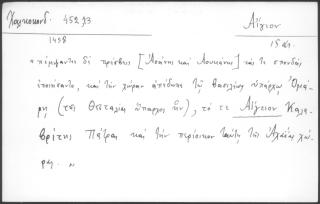 Χαλκοκονδ. 452,23 Αἴγιον
1458 15 αἰ.
"πέμψαντες δὲ πρέσβεις [Ἀσάνης καὶ Λουκάνης] καὶ τε σπονδὰς
ἐποιήσαντο, καὶ τὴν χώραν ἀπέδοσαν τῷ βασιλέως ὑπάρχῳ Ὀμά-
ρῃ (τῆς Θετταλίας ὕπαρχος ἦν), τό τε Αἴγειον Καλα-
βρύτης Πάτρας καὶ τὴν περίοικον ταύτῃ τῆς Ἀχαΐας χώ-
ραν. "